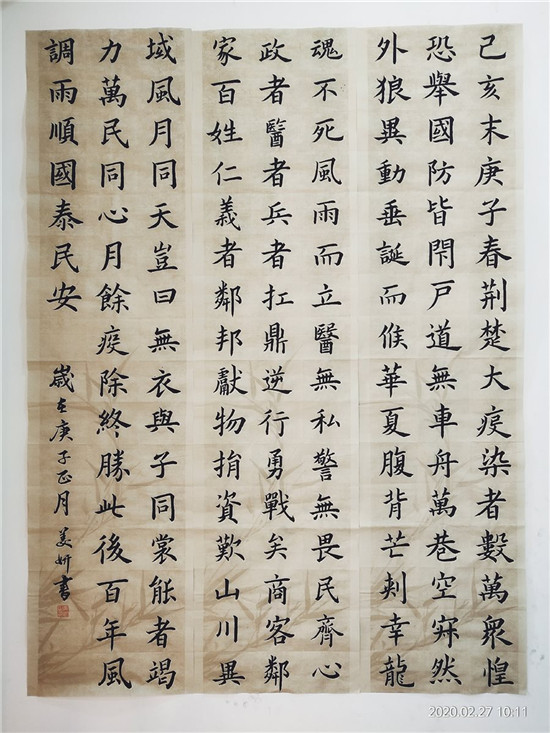 己亥末庚子春荆楚大疫染者數萬眾惶
恐舉國防皆閉戸道無車舟萬巷空寂然
外狼異動垂誕而候華夏腹背芒刺幸龍
魂不死風雨而立醫無私警無畏民齊心
政者醫者兵者扛鼎逆行勇戰矣商客鄰
家百姓仁義者鄰邦獻物捐資歎山川異
域風月同天豈曰無衣與子同裳能者竭
力萬民同心月餘疫除終勝此後百年風
調雨順國泰民安
歲在庚子正月美妍書
2020.02.27 10:11